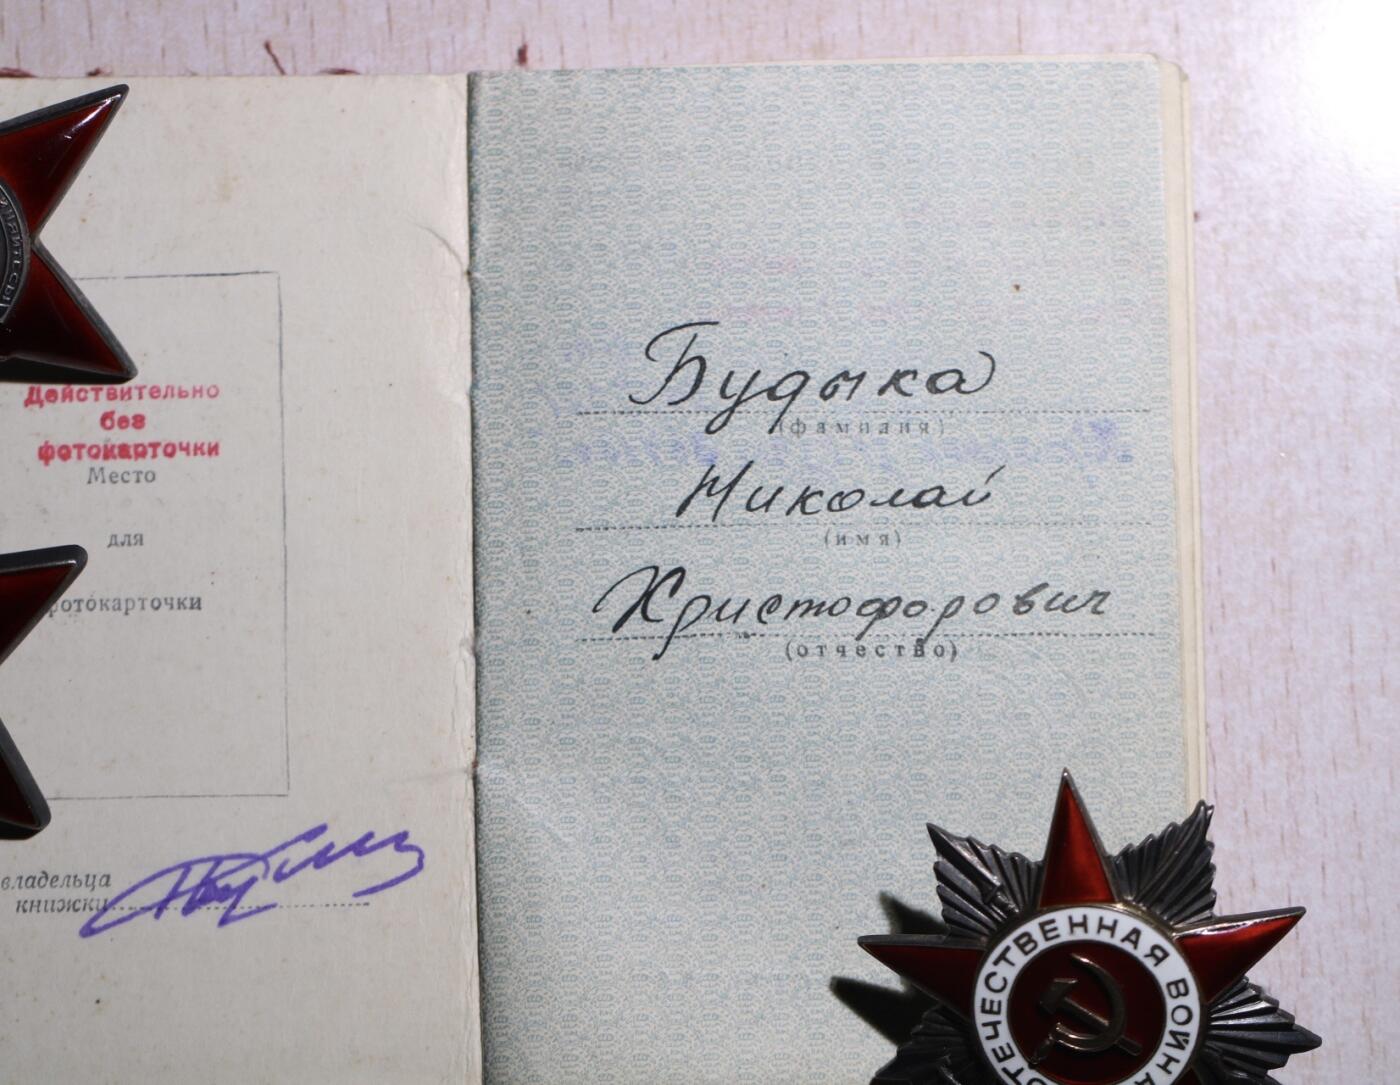 Действительно
без
фотокарточки
Место
для
фотокарточки
владельца
книжки
Будыка
(фамилия)
Николай
(имя)
Христофорович
(отчество)
ОТЕЧЕСТВЕННАЯ ВОЙНА